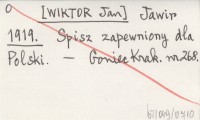 [WIKTOR Jan] Jawir
1919. Spisz zapewniony dla
Polski. – Goniec Krak. nr 268.